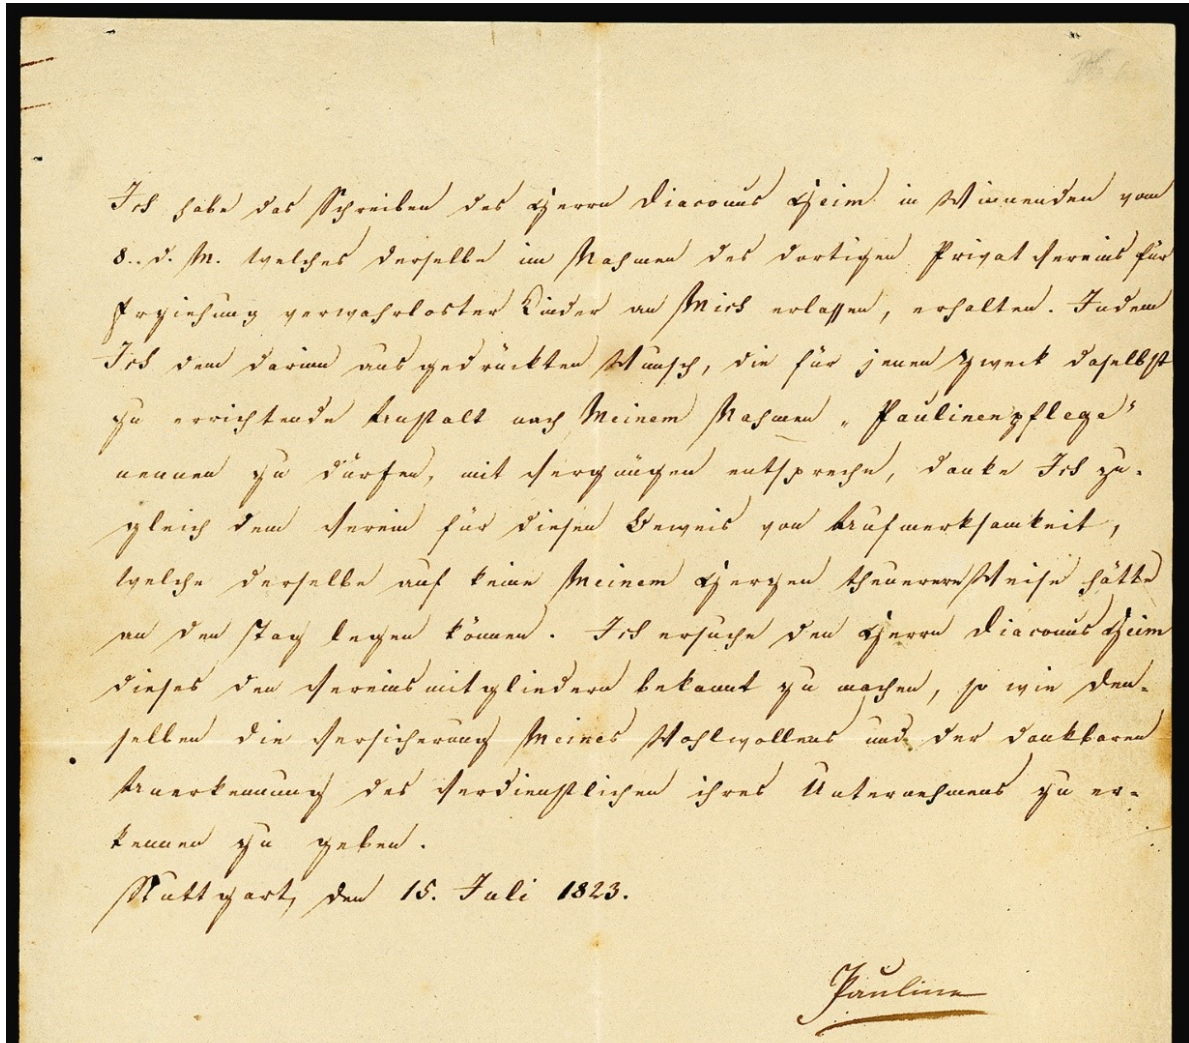 Ich habe das Schreiben des Herrn Diaconus Heim in Winnenden vom
8. d. M. welches derselbe im Nahmen des dortigen Privat Vereins für
Erziehung verwahrloster Kinder an Mich erlassen, erhalten. Indem
Ich dem darinn ausgedrückten Wunsch, die für jenen Zweck daselbst
zu errichtende Anstalt nach Meinem Nahmen „Paulinenpflege“
nennen zu dürfen, mit Vergnügen entspreche, danke Ich zu-
gleich dem Verein für diesen Beweis von Aufmerksamkeit,
welche derselbe auf keine Meinem Herzen theurere Weise hätte
an den Tag legen können. Ich ersuche den Herrn Diaconus Heim
dieses den Vereinsmitgliedern bekannt zu machen, so wie den-
selben die Versicherung Meines Wohlwollens und der dankbaren
Anerkennung des Verdienstlichen ihres Unternehmens zu er-
kennen zu geben.
Stuttgart, den 15. Juli 1823.
Pauline